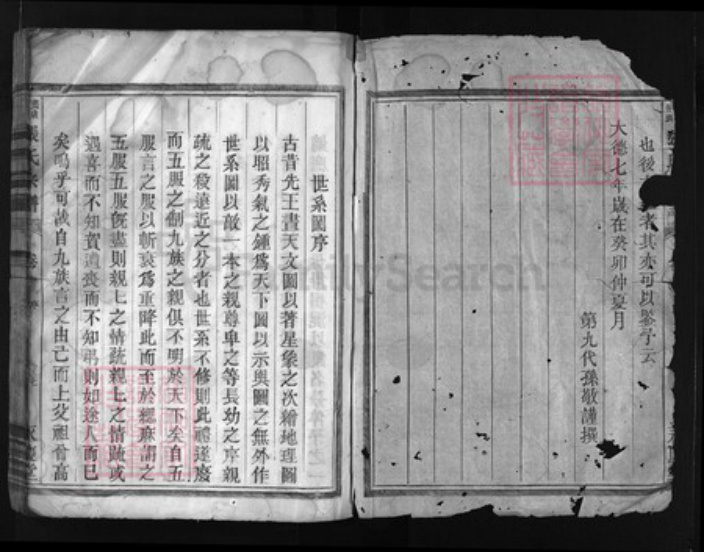 也後
者其亦可以鑒于云
大德七年歲在癸卯仲夏月
第九代孫敬謹撰
世系圖序
古昔先王畫天文圖以著星象之次繪地理圖
以昭秀氣之鍾爲天下圖以示輿圖之無外作
世系圖以敵一本之親尊卑之等長幼之序親
疏之殺遠近之分者也世系不修則此禮遂廢
而五服之制九族之親俱不明於天下矣自五
服言之服以斬衰爲重降此而至於緦麻謂之
五服五服旣盡則親上之情疏親上之情疏或
遇喜而不知賀遭喪而不知弔則如途人而已
矣嗚乎可哉自九族言之由己而上父祖曾高
張氏宗譜
FamilySearch